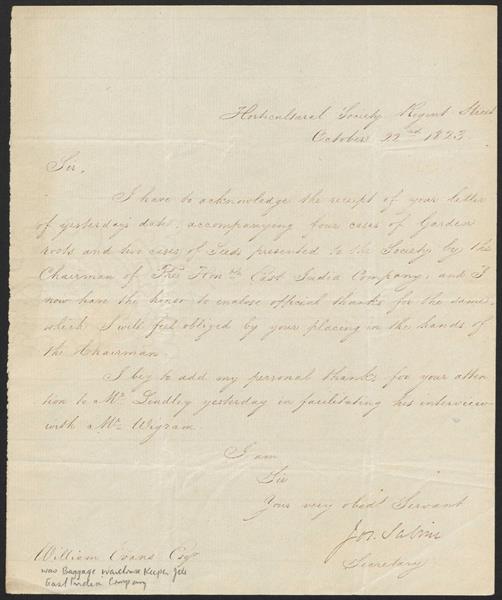 Horticultural Society Regent Street
October 22nd 1823.
Sir,
I have to acknowledge the receipt of your letter
of yesterday's date, accompanying four cases of Garden
roots and two cases of Seeds presented to the Society by the
Chairman of The Honble East India Company, and I
now have the honor to enclose official thanks for the same
which I will feel obliged by your placing in the hands of
the Chairman
I beg to add my personal thanks for your atten
tion to Mr Lindley yesterday in facilitating his interview
with Mr Wigram.
I am
Sir
Your very obedt Servant
Jos. Sabine
Secretary
William Evans Esqr
was Baggage Warehouse Keeper
East India Company